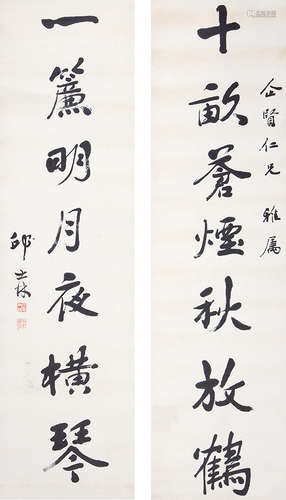 企賢仁兄 雅屬
十畝蒼煙秋放鶴
一簾明月夜橫琴